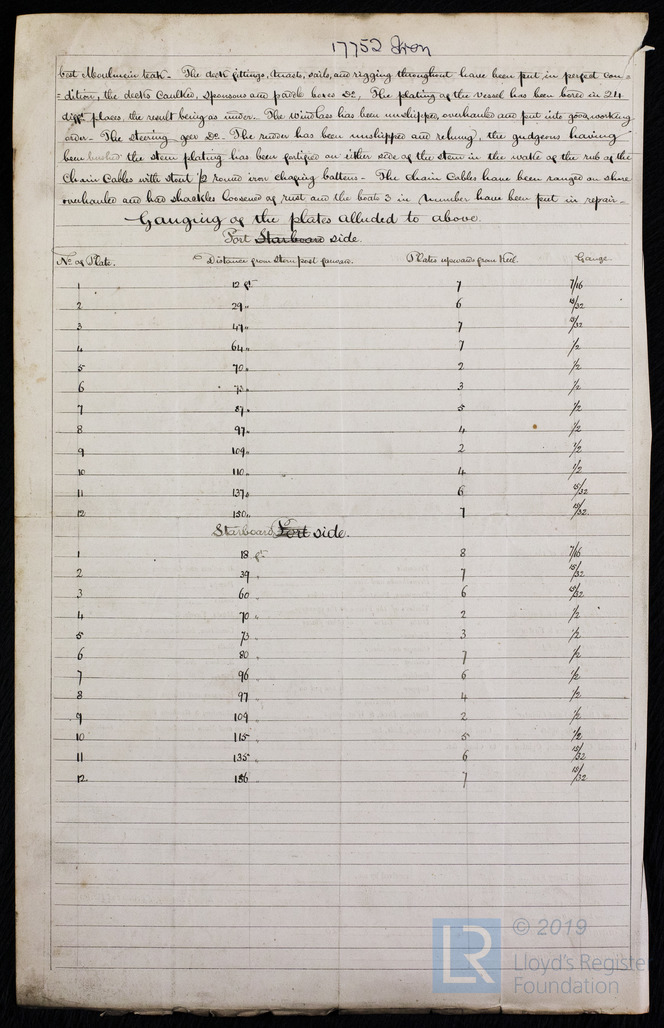 17752 Iron
best Moulmein teak - The deck fittings, masts, sails, and rigging throughout have been put in perfect con=
=dition, the decks Caulked, sponsons and paddle boxes Do, The plating of the vessel has been bored in 24
difft places, the result being as under. The windlass has been unshipped, overhauled and put into good working
order - The steering geer Do. The rudder has been unshipped and rehung, the gudgeons having
been bushed the stem plating has been fortified on either side of the stem in the wake of the rub of the
Chain Cables with stout 1/2 round iron chafing battens - The chain Cables have been ranged on shore
overhauled and had shackles loosened of rust and the boats 3 in number have been put in repair =
Gauging of the plates alluded to above.
Port Starboard side.
No of Plate. Distance from Sternpost forward. Plates upwards from Keel. Gauge
1 12 ft 7 7/16
2 29 " 6 15/32
3 47 " 7 15/32
4 64 " 7 1/2
5 70 " 2 1/2
6 73 " 3 1/2
7 87 " 5 1/2
8 97 " 4 1/2
9 109 " 2 1/2
10 110 " 4 1/2
11 137 " 6 15/32
12 150 " 7 15/32
Starboard Port side.
1 18 ft 8 7/16
2 39 " 7 15/32
3 60 " 6 15/32
4 70 " 2 1/2
5 73 " 3 1/2
6 80 " 7 1/2
7 96 " 6 1/2
8 97 " 4 1/2
9 109 " 2 1/2
10 115 " 5 1/2
11 135 " 6 15/32
12 156 " 7 15/32
LR
© 2019
Lloyd's Register
Foundation